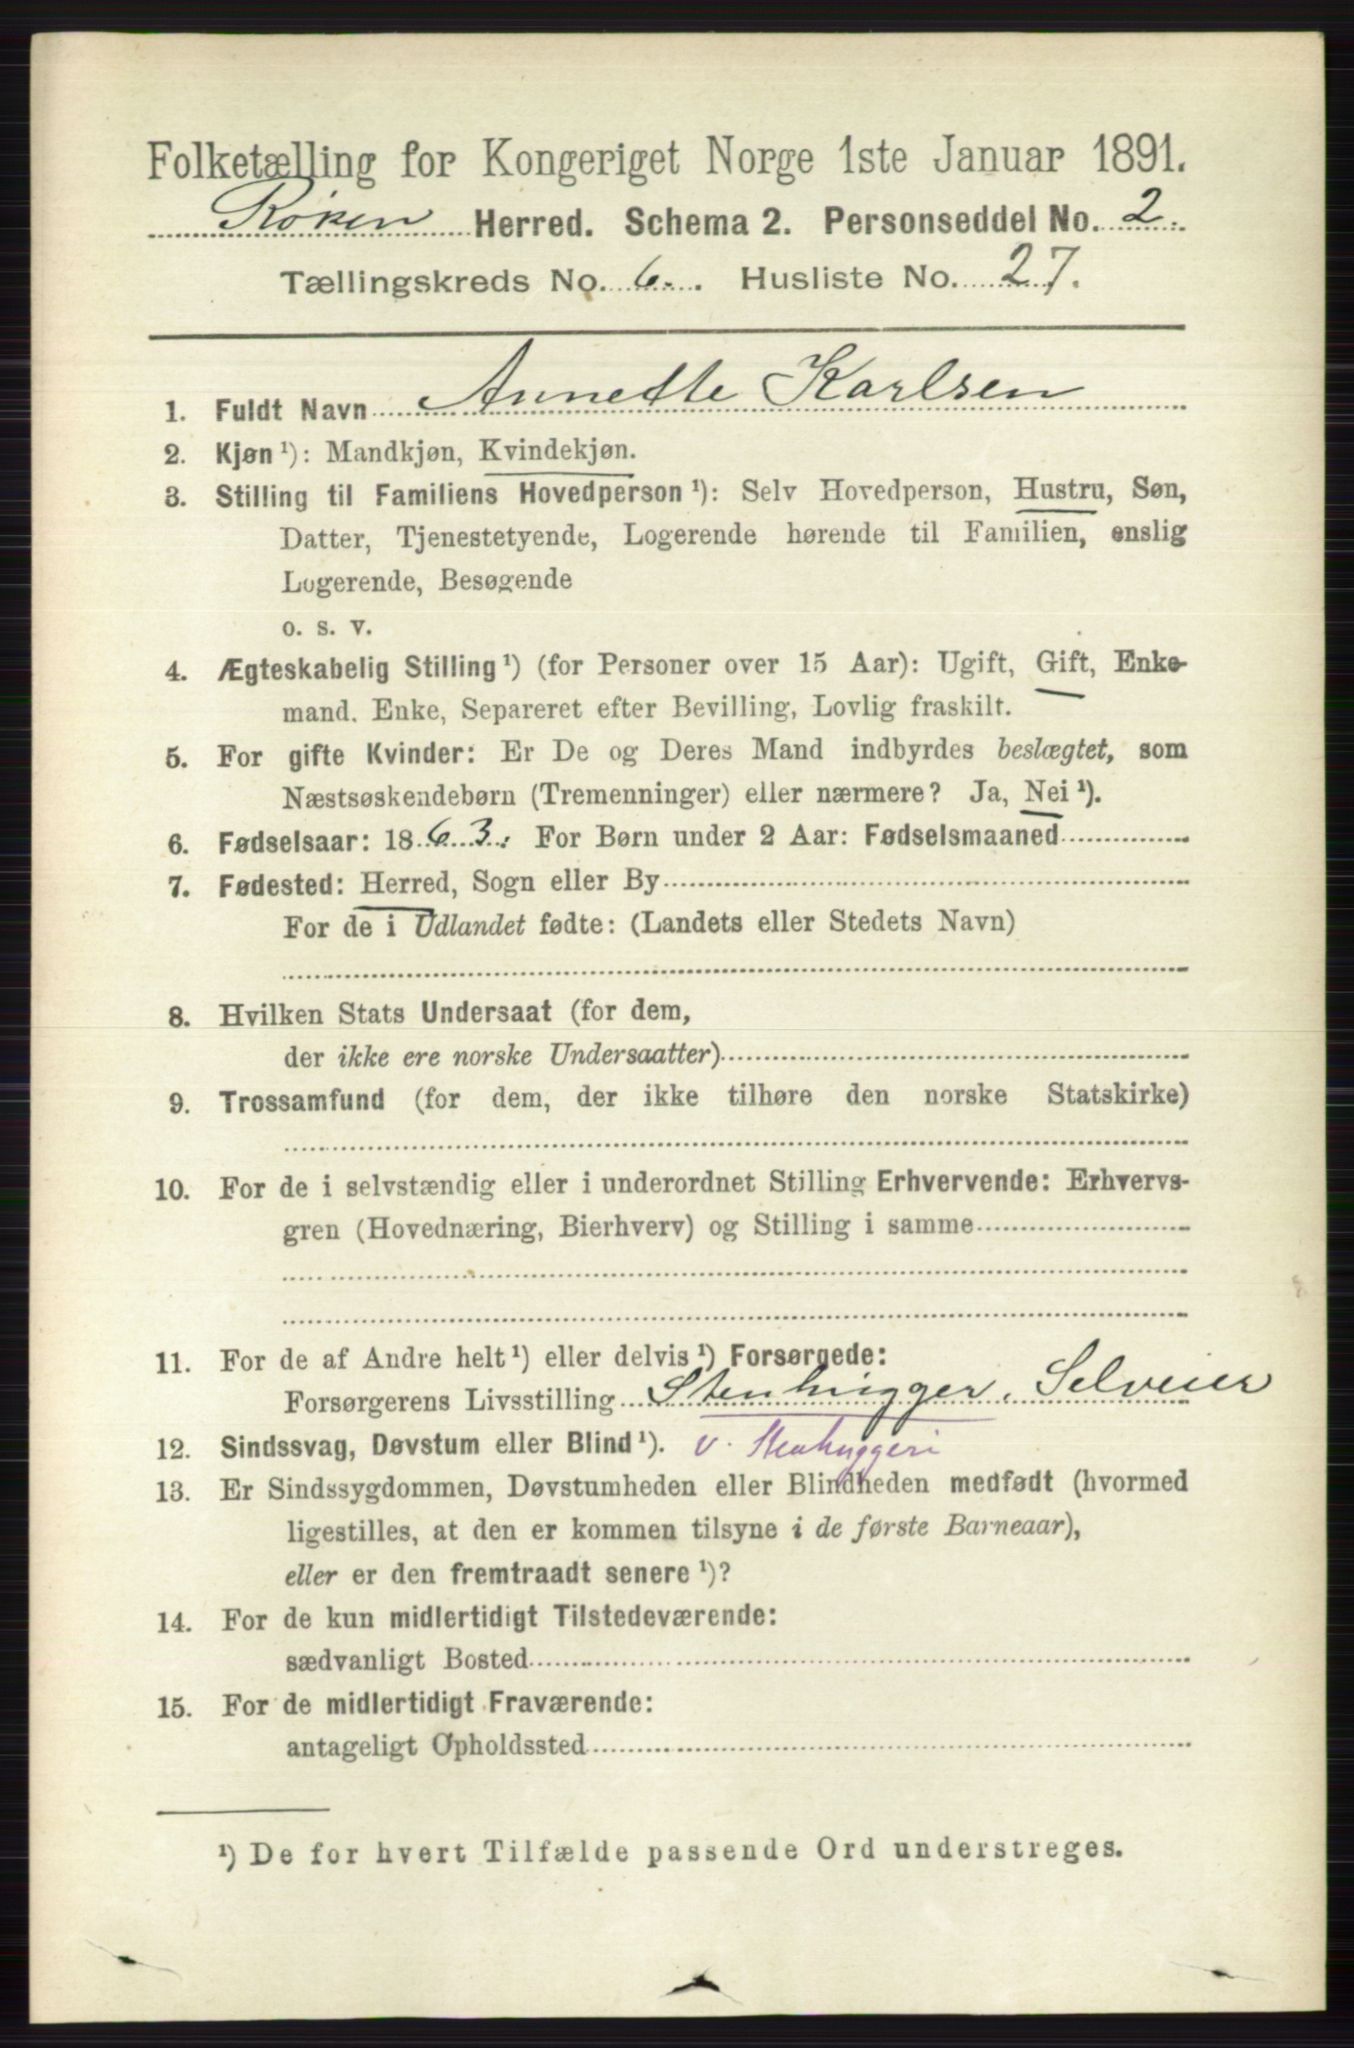 Folketælling for Kongeriget Norge 1ste Januar 1891.
Røken Herred. Schema 2. Personseddel No. 2.
Tællingskreds No. 6. Husliste No. 27.
1. Fuldt Navn Annette Karlsen
2. Kjøn ¹): Mandkjøn, Kvindekjøn.
3. Stilling til Familiens Hovedperson ¹): Selv Hovedperson, Hustru, Søn,
Datter, Tjenestetyende, Logerende hørende til Familien, enslig
Logerende, Besøgende
o. s. v.
4. Ægteskabelig Stilling ¹) (for Personer over 15 Aar): Ugift, Gift, Enke-
mand. Enke, Separeret efter Bevilling, Lovlig fraskilt.
5. For gifte Kvinder: Er De og Deres Mand indbyrdes beslægtet, som
Næstsøskendebørn (Tremenninger) eller nærmere? Ja, Nei ¹).
6. Fødselsaar: 1863. For Børn under 2 Aar: Fødselsmaaned
7. Fødested: Herred, Sogn eller By
For de i Udlandet fødte: (Landets eller Stedets Navn)
8. Hvilken Stats Undersaat (for dem,
der ikke ere norske Undersaatter)
9. Trossamfund (for dem, der ikke tilhøre den norske Statskirke)
10. For de i selvstændig eller i underordnet Stilling Erhvervende: Erhvervs-
gren (Hovednæring, Bierhverv) og Stilling i samme
11. For de af Andre helt ¹) eller delvis ¹) Forsørgede:
Forsørgerens Livsstilling Stenhugger, Selveier
12. Sindssvag, Døvstum eller Blind ¹). v. Stenhuggeri
13. Er Sindssygdommen, Døvstumheden eller Blindheden medfødt (hvormed
ligestilles, at den er kommen tilsyne i de første Barneaar),
eller er den fremtraadt senere ¹)?
14. For de kun midlertidigt Tilstedeværende:
sædvanligt Bosted
15. For de midlertidigt Fraværende:
antageligt Opholdssted
¹) De for hvert Tilfælde passende Ord understreges.